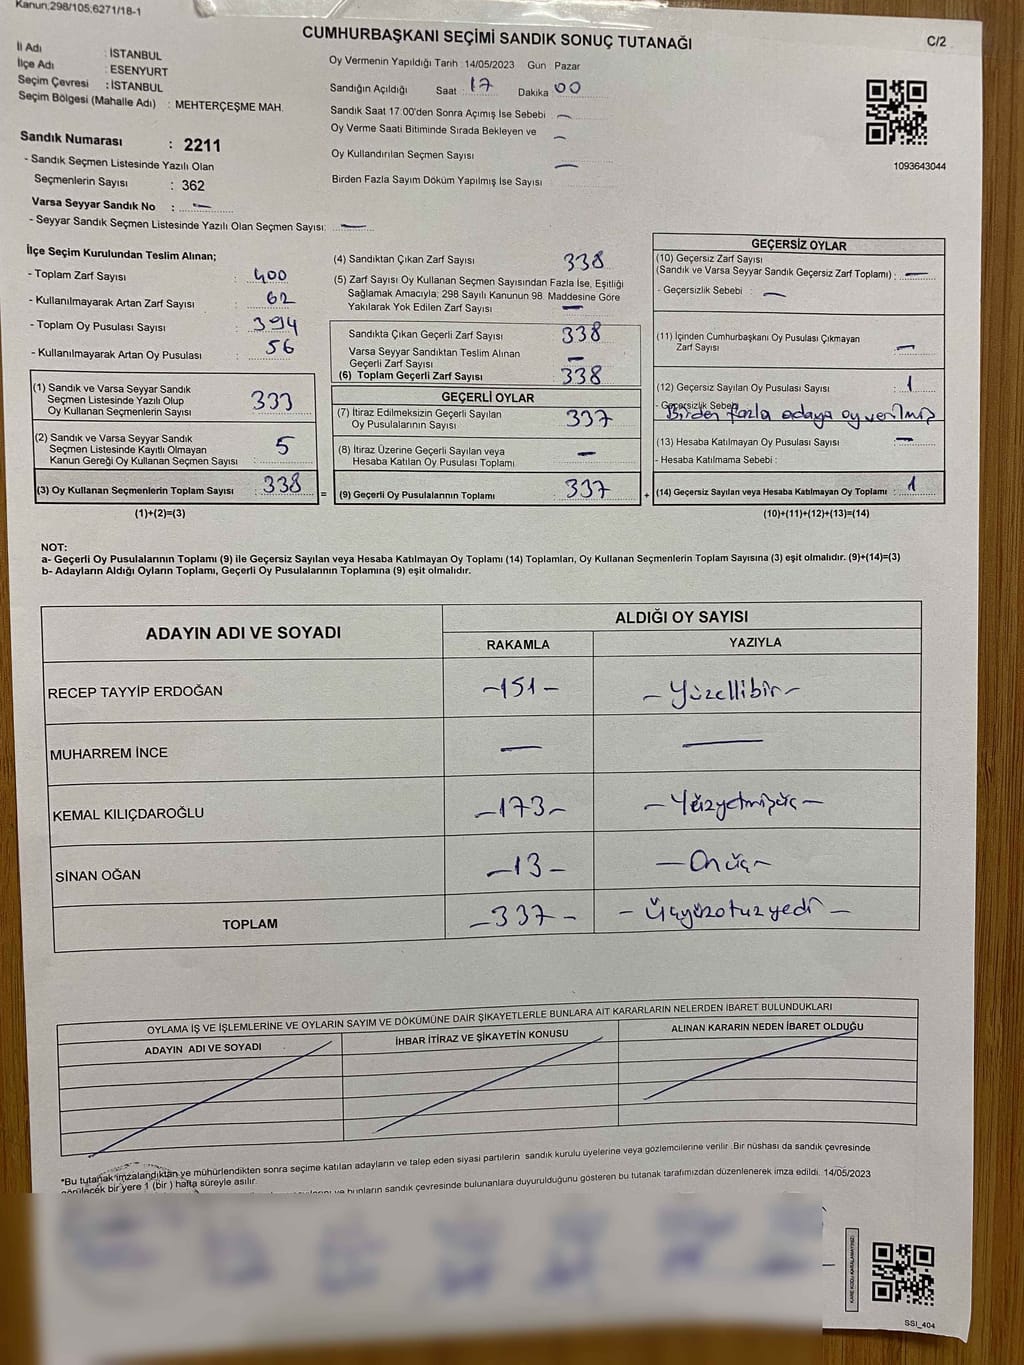 Kanun;298/105;6271/18-1
CUMHURBAŞKANI SEÇİMİ SANDIK SONUÇ TUTANAĞI
C/2
İl Adı : İSTANBUL
İlçe Adı : ESENYURT
Seçim Çevresi : İSTANBUL
Seçim Bölgesi (Mahalle Adı) : MEHTERÇEŞME MAH.
Sandık Numarası : 2211
- Sandık Seçmen Listesinde Yazılı Olan
Seçmenlerin Sayısı : 362
Varsa Seyyar Sandık No : —
- Seyyar Sandık Seçmen Listesinde Yazılı Olan Seçmen Sayısı: —
Oy Vermenin Yapıldığı Tarih 14/05/2023 Gün Pazar
Sandığın Açıldığı Saat 17 Dakika 00
Sandık Saat 17:00'den Sonra Açımış İse Sebebi —
Oy Verme Saati Bitiminde Sırada Bekleyen ve —
Oy Kullandırılan Seçmen Sayısı —
Birden Fazla Sayım Döküm Yapılmış İse Sayısı
1093643044
İlçe Seçim Kurulundan Teslim Alınan;
- Toplam Zarf Sayısı : 400
- Kullanılmayarak Artan Zarf Sayısı : 62
- Toplam Oy Pusulası Sayısı : 394
- Kullanılmayarak Artan Oy Pusulası : 56
(1) Sandık ve Varsa Seyyar Sandık
Seçmen Listesinde Yazılı Olup
Oy Kullanan Seçmenlerin Sayısı 333
(2) Sandık ve Varsa Seyyar Sandık
Seçmen Listesinde Kayıtlı Olmayan
Kanun Gereği Oy Kullanan Seçmen Sayısı : 5
(3) Oy Kullanan Seçmenlerin Toplam Sayısı : 338
(1)+(2)=(3)
(4) Sandıktan Çıkan Zarf Sayısı 338
(5) Zarf Sayısı Oy Kullanan Seçmen Sayısından Fazla İse, Eşitliği
Sağlamak Amacıyla; 298 Sayılı Kanunun 98. Maddesine Göre
Yakılarak Yok Edilen Zarf Sayısı —
Sandıkta Çıkan Geçerli Zarf Sayısı 338
Varsa Seyyar Sandıktan Teslim Alınan
Geçerli Zarf Sayısı —
(6) Toplam Geçerli Zarf Sayısı 338
GEÇERLİ OYLAR
(7) İtiraz Edilmeksizin Geçerli Sayılan
Oy Pusulalarının Sayısı 337
(8) İtiraz Üzerine Geçerli Sayılan veya
Hesaba Katılan Oy Pusulası Toplamı —
= (9) Geçerli Oy Pusulalarının Toplamı 337
GEÇERSİZ OYLAR
(10) Geçersiz Zarf Sayısı
(Sandık ve Varsa Seyyar Sandık Geçersiz Zarf Toplamı) : —
- Geçersizlik Sebebi : —
(11) İçinden Cumhurbaşkanı Oy Pusulası Çıkmayan
Zarf Sayısı —
(12) Geçersiz Sayılan Oy Pusulası Sayısı : 1
- Geçersizlik Sebebi
Birden fazla adaya oy verilmiş
(13) Hesaba Katılmayan Oy Pusulası Sayısı : —
- Hesaba Katılmama Sebebi :
+ (14) Geçersiz Sayılan veya Hesaba Katılmayan Oy Toplamı : 1
(10)+(11)+(12)+(13)=(14)
NOT:
a- Geçerli Oy Pusulalarının Toplamı (9) ile Geçersiz Sayılan veya Hesaba Katılmayan Oy Toplamı (14) Toplamları, Oy Kullanan Seçmenlerin Toplam Sayısına (3) eşit olmalıdır. (9)+(14)=(3)
b- Adayların Aldığı Oyların Toplamı, Geçerli Oy Pusulalarının Toplamına (9) eşit olmalıdır.
ADAYIN ADI VE SOYADI
ALDIĞI OY SAYISI
RAKAMLA YAZIYLA
RECEP TAYYİP ERDOĞAN -151- - Yüzellibir -
MUHARREM İNCE — —
KEMAL KILIÇDAROĞLU -173- - Yüzyetmişüç -
SİNAN OĞAN -13- - Onüç -
TOPLAM -337- - Üçyüzotuzyedi -
OYLAMA İŞ VE İŞLEMLERİNE VE OYLARIN SAYIM VE DÖKÜMÜNE DAİR ŞİKAYETLERLE BUNLARA AİT KARARLARIN NELERDEN İBARET BULUNDUKLARI
ADAYIN ADI VE SOYADI İHBAR İTİRAZ VE ŞİKAYETİN KONUSU ALINAN KARARIN NEDEN İBARET OLDUĞU
*Bu tutanak imzalandıktan ve mühürlendikten sonra seçime katılan adayların ve talep eden siyasi partilerin sandık kurulu üyelerine veya gözlemcilerine verilir .Bir nüshası da sandık çevresinde
görülecek bir yere 1 (bir) hafta süreyle asılır.
ve bunların sandık çevresinde bulunanlara duyurulduğunu gösteren bu tutanak tarafımızdan düzenlenerek imza edildi. 14/05/2023
KARE KODU KARALAMAYINIZ!
SSI_404